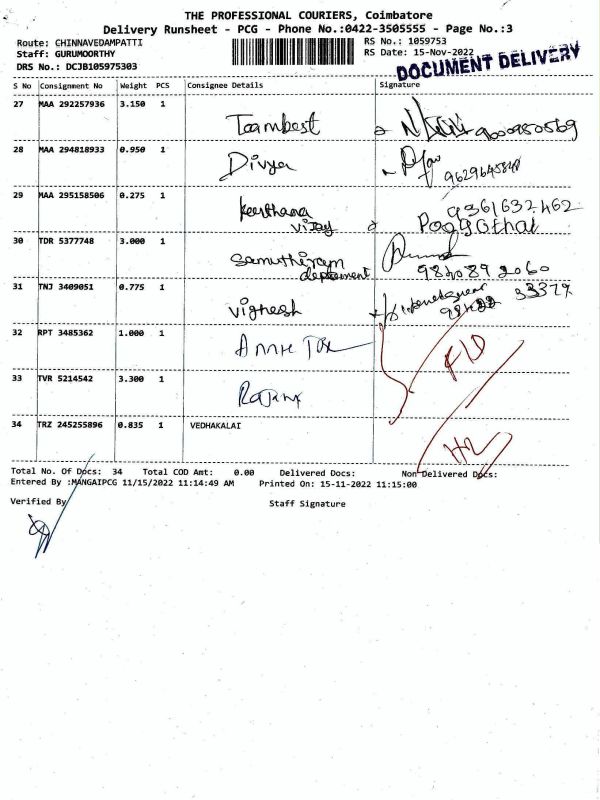 THE PROFESSIONAL COURIERS, Coimbatore
Delivery Runsheet - PCG - Phone No.:0422-3505555 - Page No.:3
Route: CHINNAVEDAMPATTI
RS No.: 1059753
Staff: GURUMOORTHY
RS Date: 15-Nov-2022
DRS No.: DCJB105975303
DOCUMENT DELIVERY
S No Consignment No Weight PCS Consignee Details Signature
27 MAA 292257936 3.150 1
28 MAA 294818933 0.950 1
Divya
29 MAA 295158506 0.275 1
9361632462
Keerthana
vijay
30 TDR 5377748 3.000 1
9840892060
31 TNJ 3409051 0.775 1
33379
Vignesh
32 RPT 3485362 1.000 1
33 TVR 5214542 3.300 1
34 TRZ 245255896 0.835 1 VEDHAKALAI
Total No. Of Docs: 34 Total COD Amt: 0.00 Delivered Docs: Non-Delivered Docs:
Entered By :MANGAIPCG 11/15/2022 11:14:49 AM Printed On: 15-11-2022 11:15:00
Verified By Staff Signature